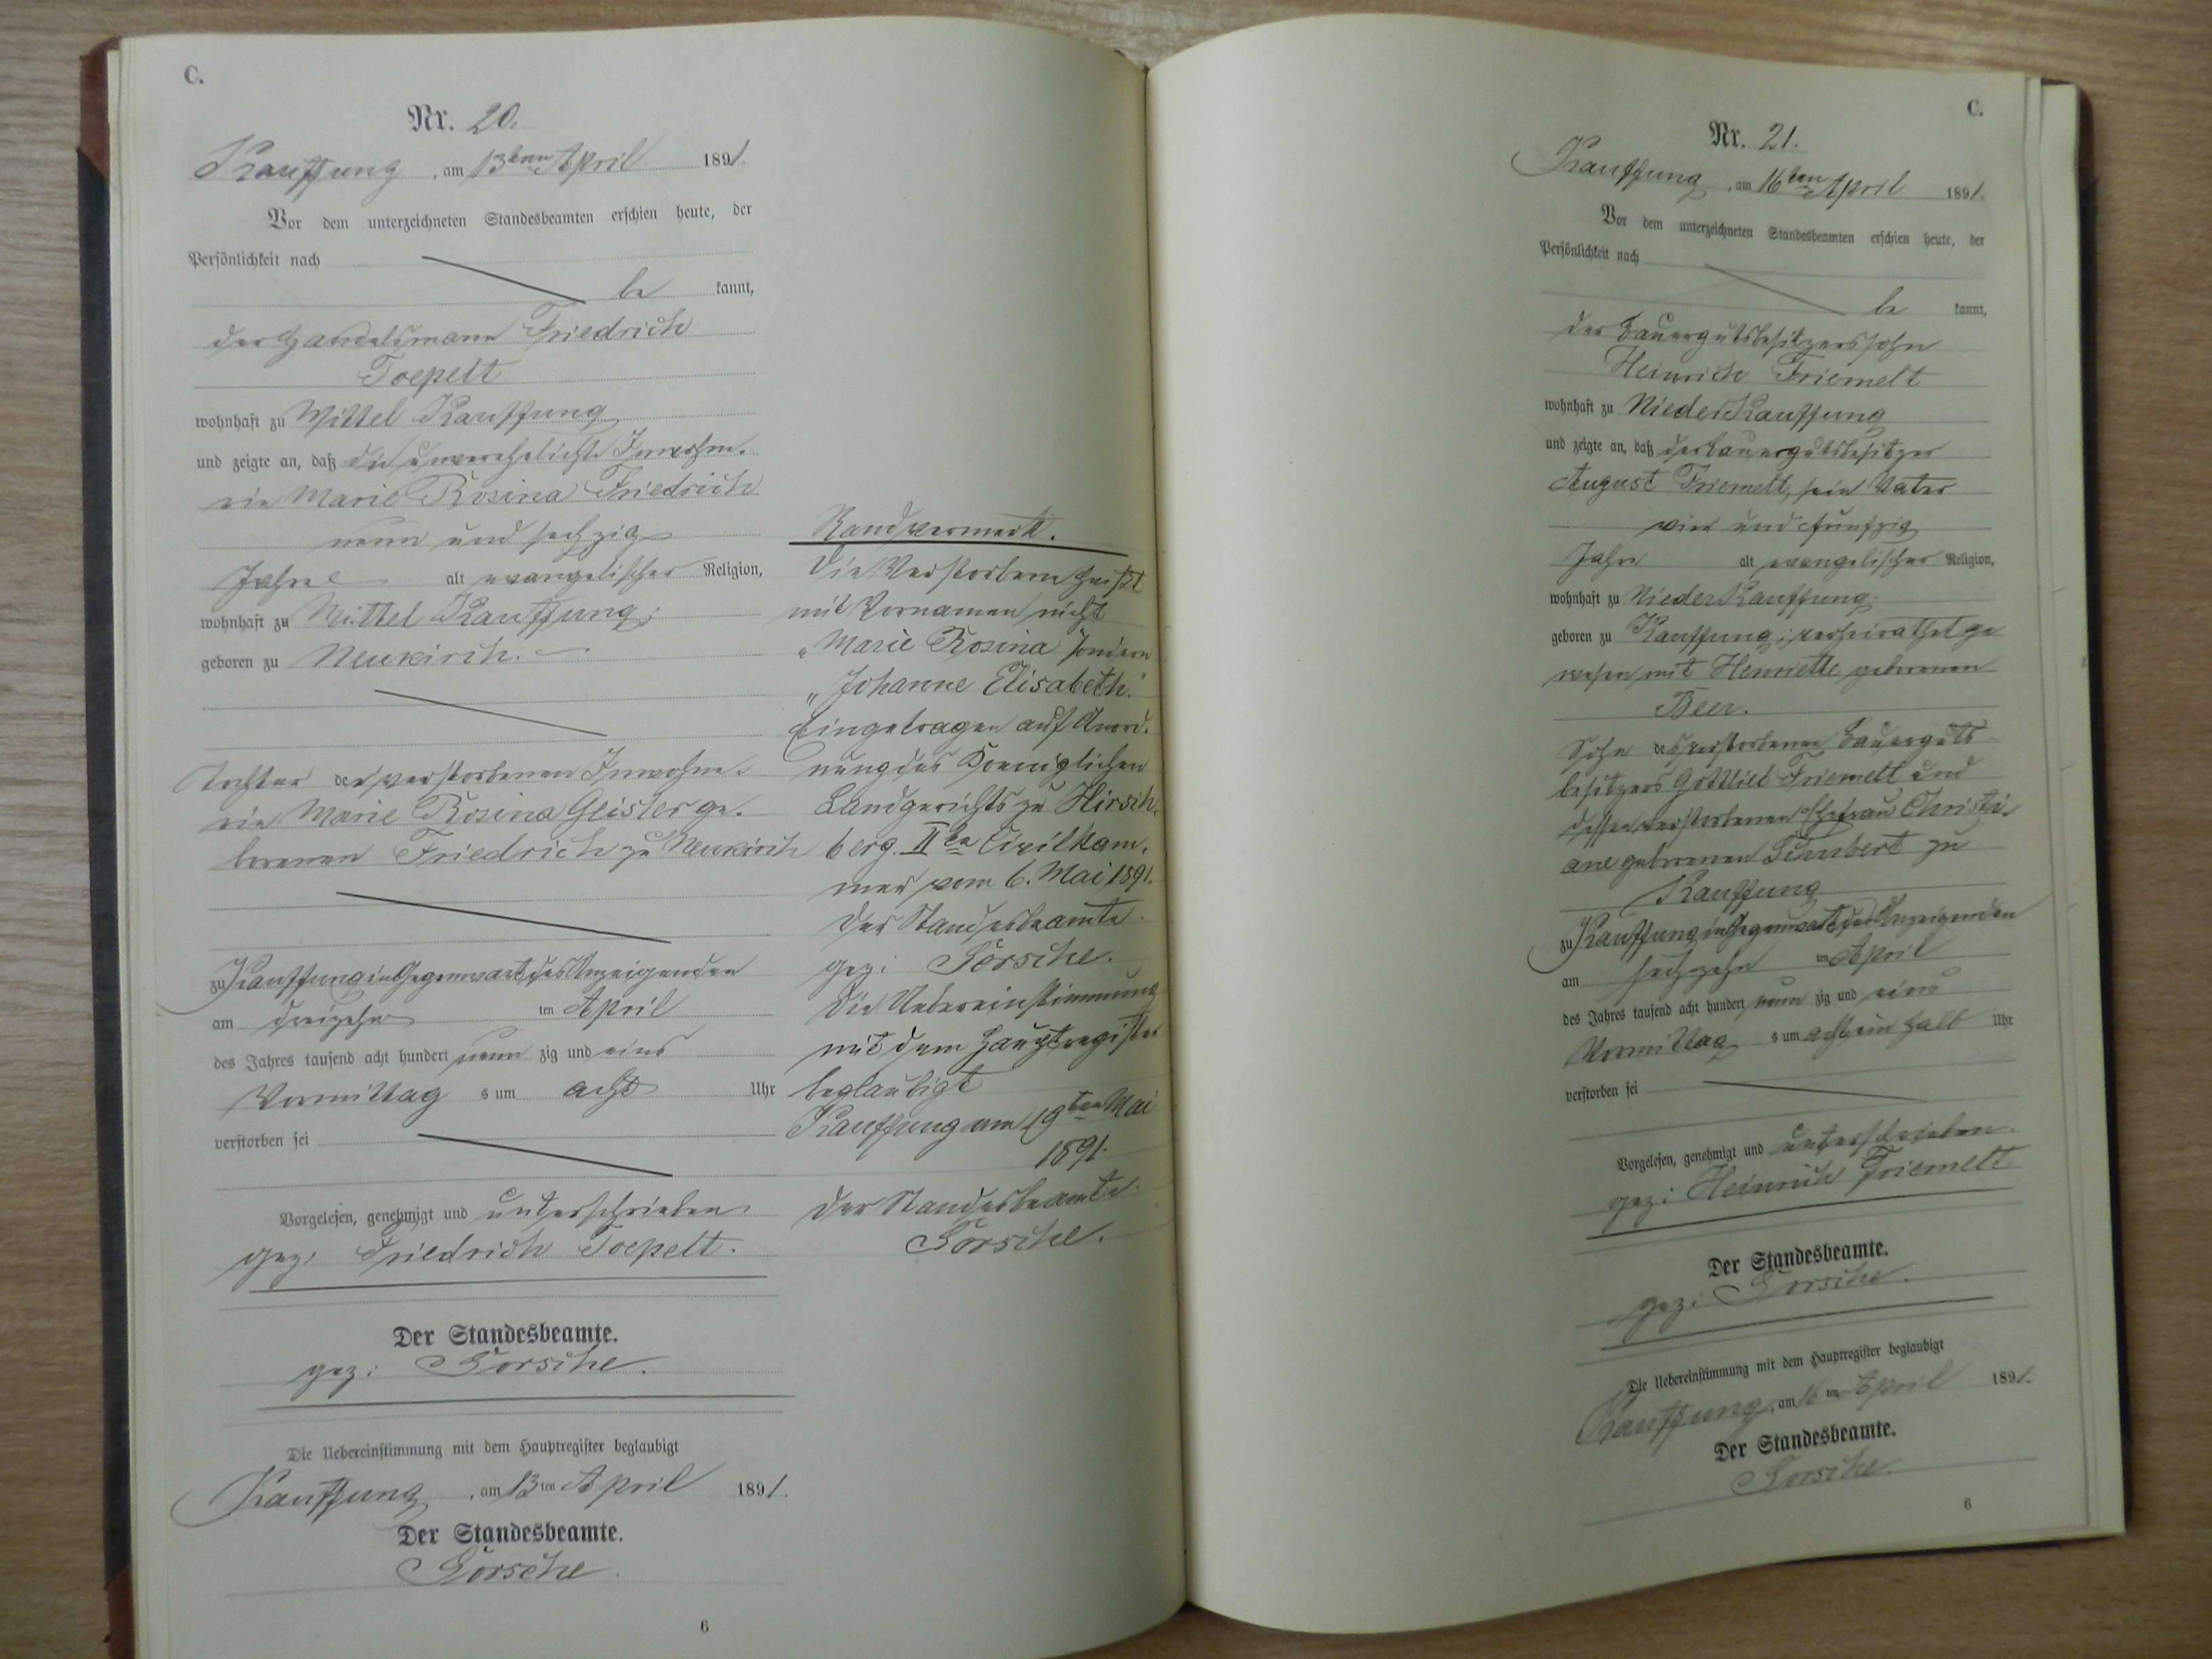 C.
Nr. 20.
Kauffung, am 13ten April 1891.
Vor dem unterzeichneten Standesbeamten erschien heute, der
Persönlichkeit nach
be kannt,
der Handelsmann Friedrich
Toepelt
wohnhaft zu Mittel Kauffung
und zeigte an, daß die unverehelichte Inwohne-
rin Marie Rosina Friedrich
neun und sechzig
Jahre alt evangelischer Religion,
wohnhaft zu Mittel Kauffung;
geboren zu Neukirch.
Tochter der verstorbenen Inwohne-
rin Marie Rosina Geisler ge-
borenen Friedrich zu Neukirch
zu Kauffung in Gegenwart des Anzeigenden
am dreizehn ten April
des Jahres tausend acht hundert neun zig und eins
Vormittag s um acht Uhr
verstorben sei
Vorgelesen, genehmigt und unterschrieben.
gez: Friedrich Toepelt.
Der Standesbeamte.
gez: Görsche.
Die Uebereinstimmung mit dem Hauptregister beglaubigt
Kauffung, am 13ten April 1891.
Der Standesbeamte.
Görsche.
6
Randvermerk.
Die Verstorbene heißt
mit Vornamen nicht
"Marie Rosina" sondern
"Johanne Elisabeth."
Eingetragen auf Anord-
nung des Koeniglichen
Landgerichts zu Hirsch-
berg. IIte Civilkam-
mer vom 6. Mai 1891.
Der Standesbeamte.
gez: Görsche.
Die Uebereinstimmung
mit dem Hauptregister
beglaubigt
Kauffung am 19ten Mai
1891.
Der Standesbeamte.
Görsche.
C.
Nr. 21.
Kauffung, am 16ten April 1891.
Vor dem unterzeichneten Standesbeamten erschien heute, der
Persönlichkeit nach
be kannt,
der Bauergutsbesitzerssohn
Heinrich Friemelt
wohnhaft zu Nieder Kauffung
und zeigte an, daß der Bauergutsbesitzer
August Friemelt, sein Vater
vier und fünfzig
Jahre alt evangelischer Religion,
wohnhaft zu Nieder Kauffung.
geboren zu Kauffung; verheirathet ge
wesen mit Henriette geborenen
Beer.
Sohn des verstorbenen Bauerguts-
besitzers Gottlieb Friemelt und
dessen verstorbenen Ehefrau Christi-
ane geborenen zu
Kauffung
zu Kauffung in Gegenwart des Anzeigenden
am sechzehn ten April
des Jahres tausend acht hundert neun zig und eins
Vormittag s um acht ein halb Uhr
verstorben sei
Vorgelesen, genehmigt und unterschrieben.
gez: Heinrich Friemelt
Der Standesbeamte.
gez: Görsche.
Die Uebereinstimmung mit dem Hauptregister beglaubigt
Kauffung, am 16ten April 1891.
Der Standesbeamte.
Görsche
6